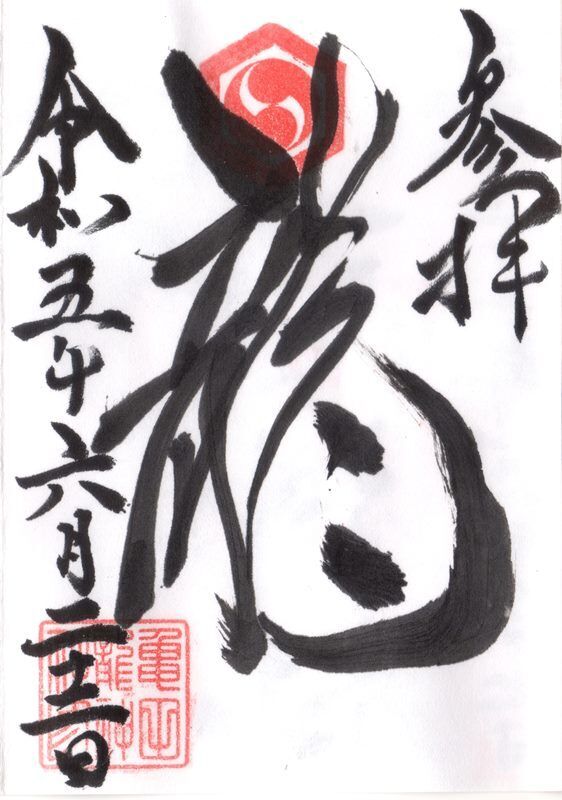 参拝
龍
令和五年六月二十二日
亀山
龍神